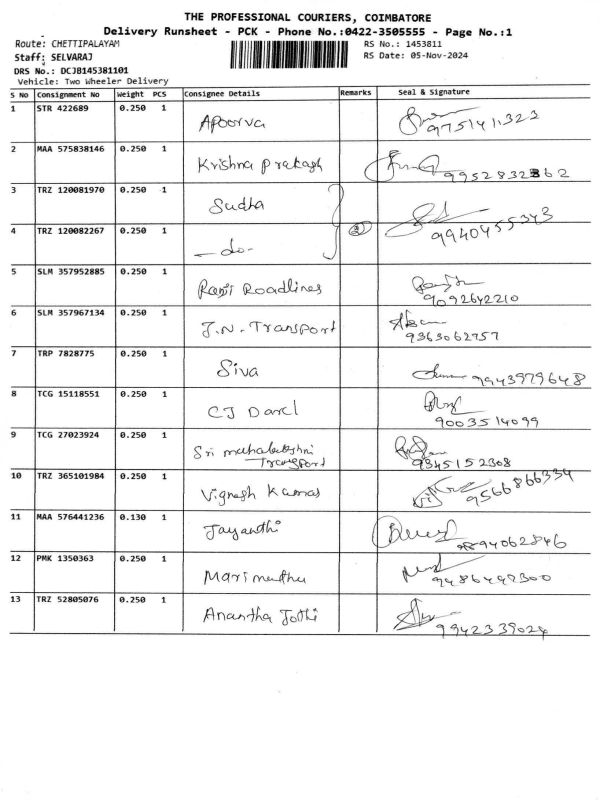 THE PROFESSIONAL COURIERS, COIMBATORE
Delivery Runsheet - PCK - Phone No.:0422-3505555 - Page No.:1
Route: CHETTIPALAYAM RS No.: 1453811
Staff: SELVARAJ RS Date: 05-Nov-2024
DRS No.: DCJB145381101
Vehicle: Two Wheeler Delivery
S No Consignment No Weight PCS Consignee Details Remarks Seal & Signature
1 STR 422689 0.250 1 Apoorva 9751411323
2 MAA 575838146 0.250 1 Krishna Prakash 9952832862
3 TRZ 120081970 0.250 1 Sudha
4 TRZ 120082267 0.250 1 - do - 2 9940455343
5 SLM 357952885 0.250 1 Roadlines 9092642210
6 SLM 357967134 0.250 1 J.N. Transport 9363062757
7 TRP 7828775 0.250 1 Siva 9943979648
8 TCG 15118551 0.250 1 CJ 9003514099
9 TCG 27023924 0.250 1 Sri mahalakshmi
Transport 9345152308
10 TRZ 365101984 0.250 1 Vignesh 9566866334
11 MAA 576441236 0.130 1 Jayanthi 9894062846
12 PMK 1350363 0.250 1 Marimuthu 9486492300
13 TRZ 52805076 0.250 1 Anantha Jothi 9942339024